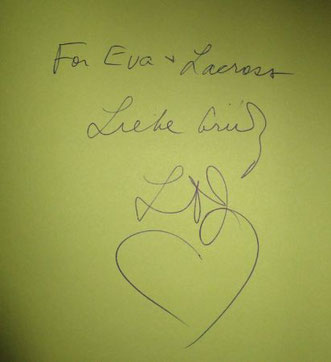 For Eva + Lacross
Liebe Grüß